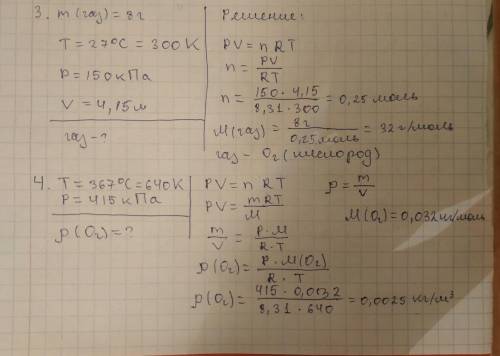 3. m(газ) = 8г
T = 27°C = 300 K
P = 150 кПа
V = 4,15 л
газ - ?
Решение:
PV = n RT
n = PV / RT
n = 150 · 4,15 / 8,31 · 300 = 0,25 моль
M(газ) = 8г / 0,25 моль = 32 г/моль
газ - O₂ (кислород)
4. T = 367°C = 640K
P = 415 кПа
ρ(O₂) = ?
PV = n RT
PV = mRT / M
m / V = P · M / R · T
ρ(O₂) = P · M(O₂) / R · T
ρ(O₂) = 415 · 0,032 / 8,31 · 640 = 0,0025 кг/м³
ρ = m / V
M(O₂) = 0,032 кг/моль